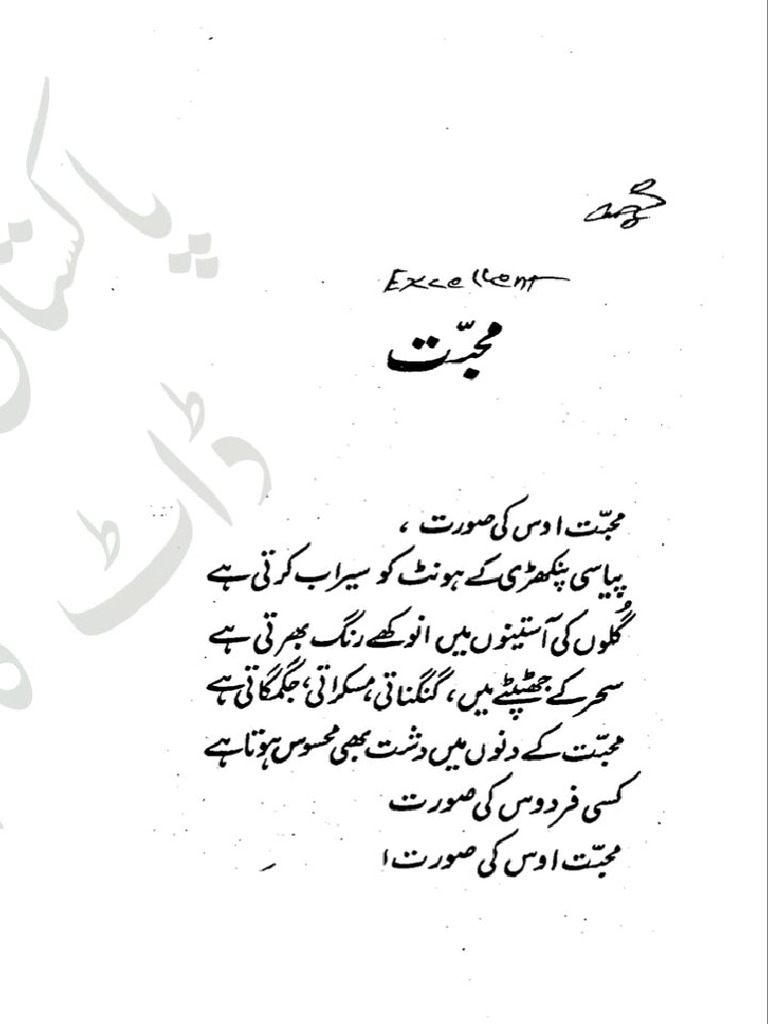 Excellent
محبّت
محبّت اوس کی صورت ،
پیاسی پنکھڑی کے ہونٹ کو سیراب کرتی ہے
گُلوں کی آستینوں میں انوکھے رنگ بھرتی ہے
سحر کے جھٹپٹے میں، گنگناتی، مسکراتی، جگمگاتی ہے
محبّت کے دنوں میں دشت بھی محسوس ہوتا ہے
کسی فردوس کی صورت
محبّت اوس کی صورت ا
پاکستان
ڈاٹ